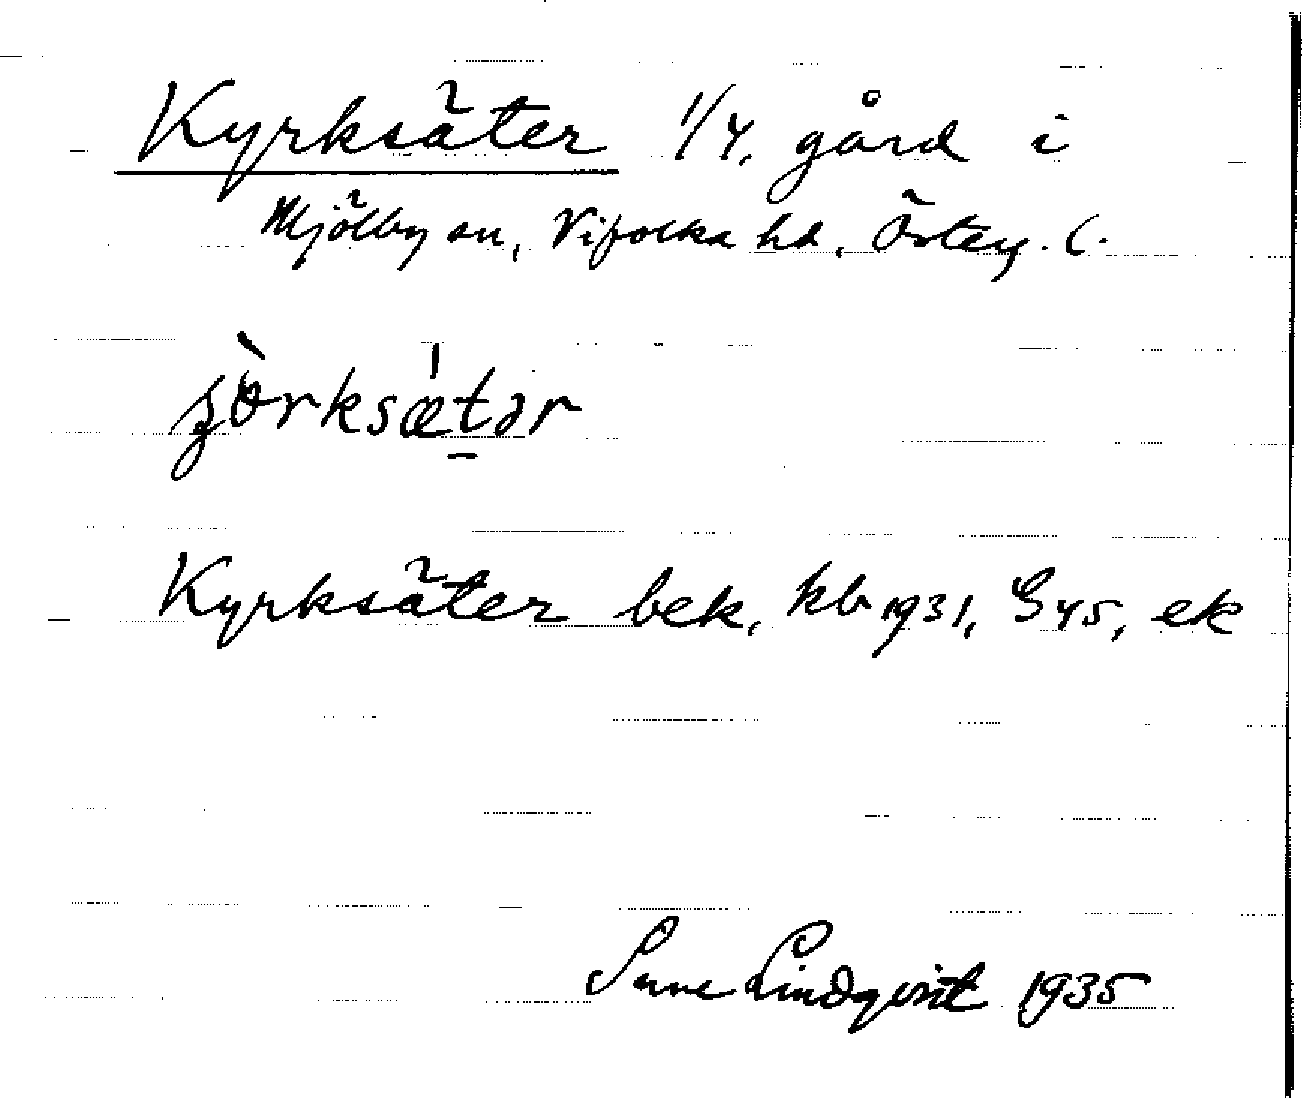 Kyrksäter 1/4, gård i
Mjölby sn, Vifolka hd, Österg. l.
Kyrksäter bek, kb 1931, G45, ek
Sune Lindqvist 1935